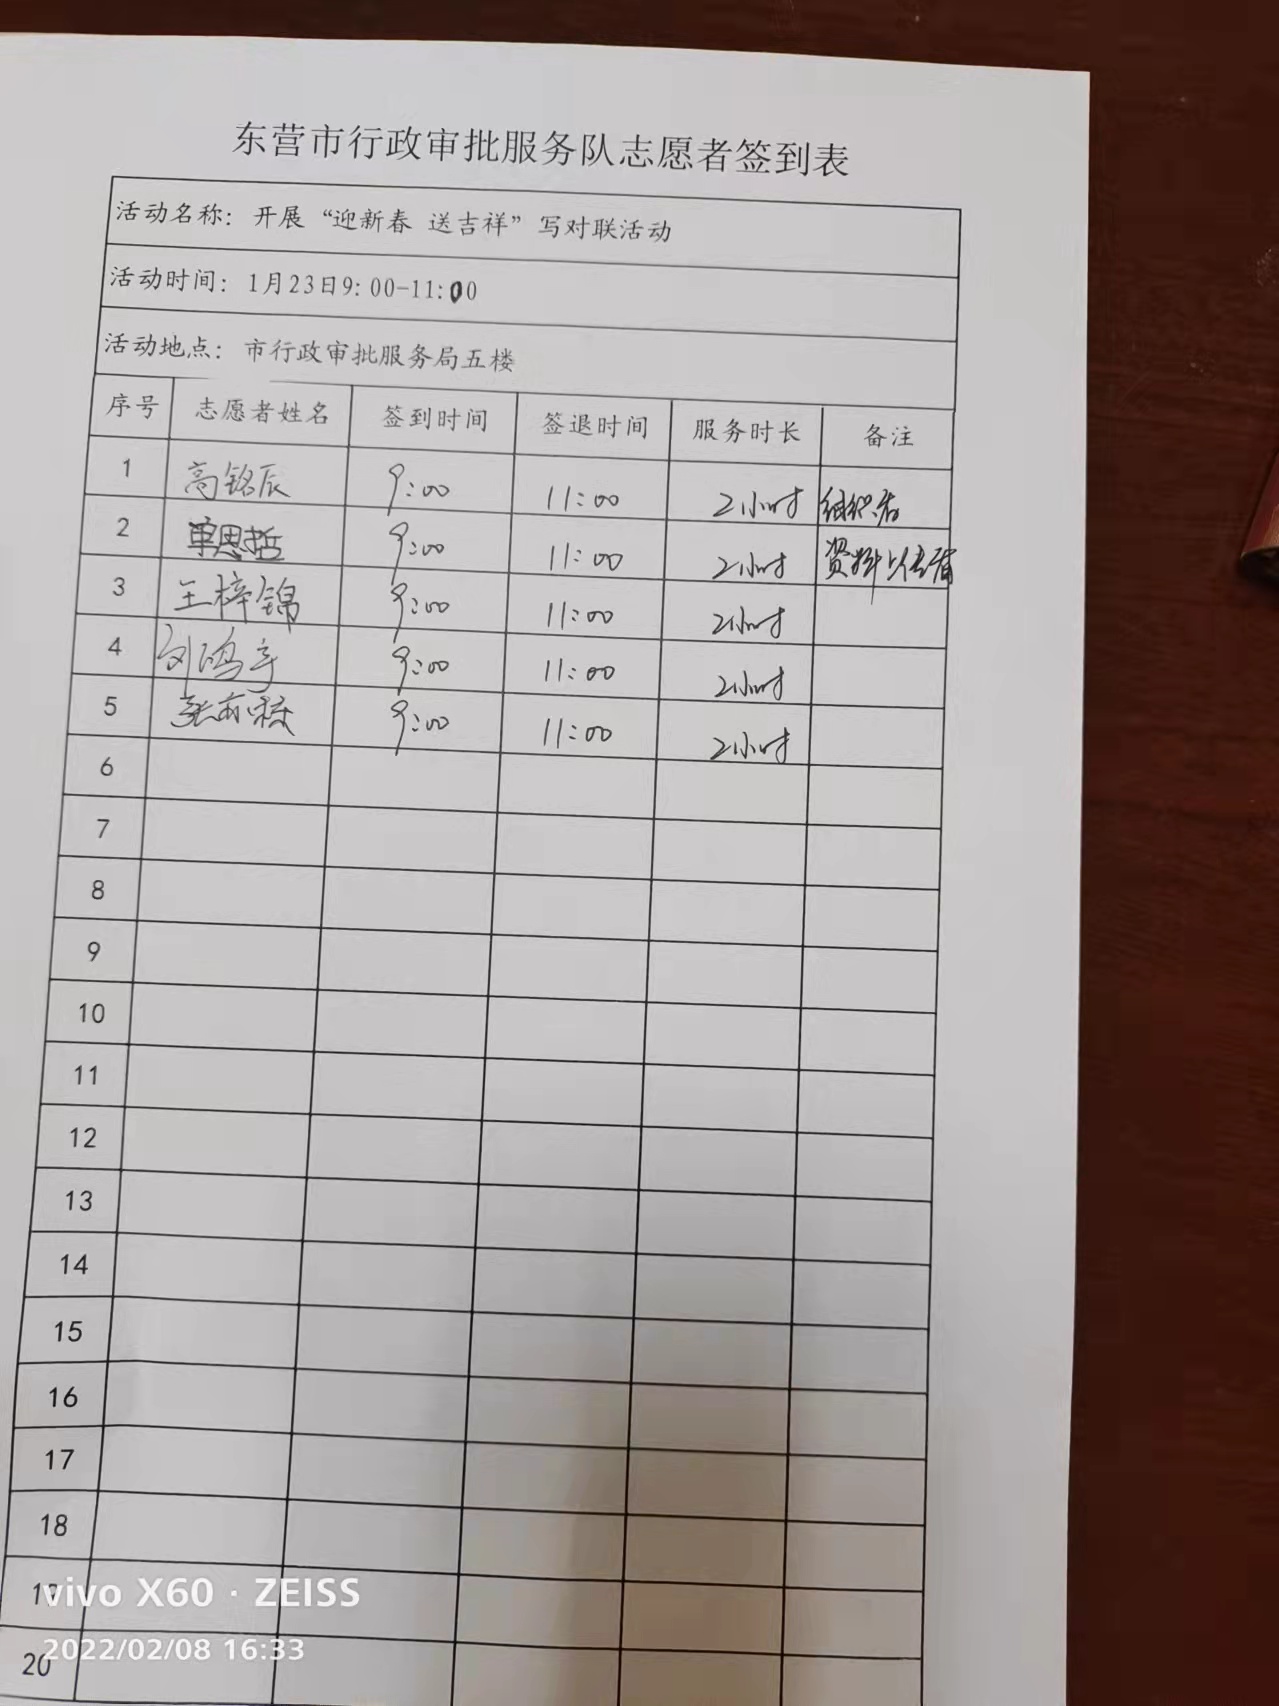 东营市行政审批服务队志愿者签到表
活动名称：开展“迎新春 送吉祥”写对联活动
活动时间：1月23日9：00-11:00
活动地点：市行政审批服务局五楼
序号 志愿者姓名 签到时间 签退时间 服务时长 备注
1 高铭辰 9:00 11:00 2小时 组织者
2 单思哲 9:00 11:00 2小时 资料
3 王梓锦 9:00 11:00 2小时
4 刘鸿宇 9:00 11:00 2小时
5 张 9:00 11:00 2小时
6
7
8
9
10
11
12
13
14
15
16
17
18
19
20
vivo X60 · ZEISS
2022/02/08 16:33